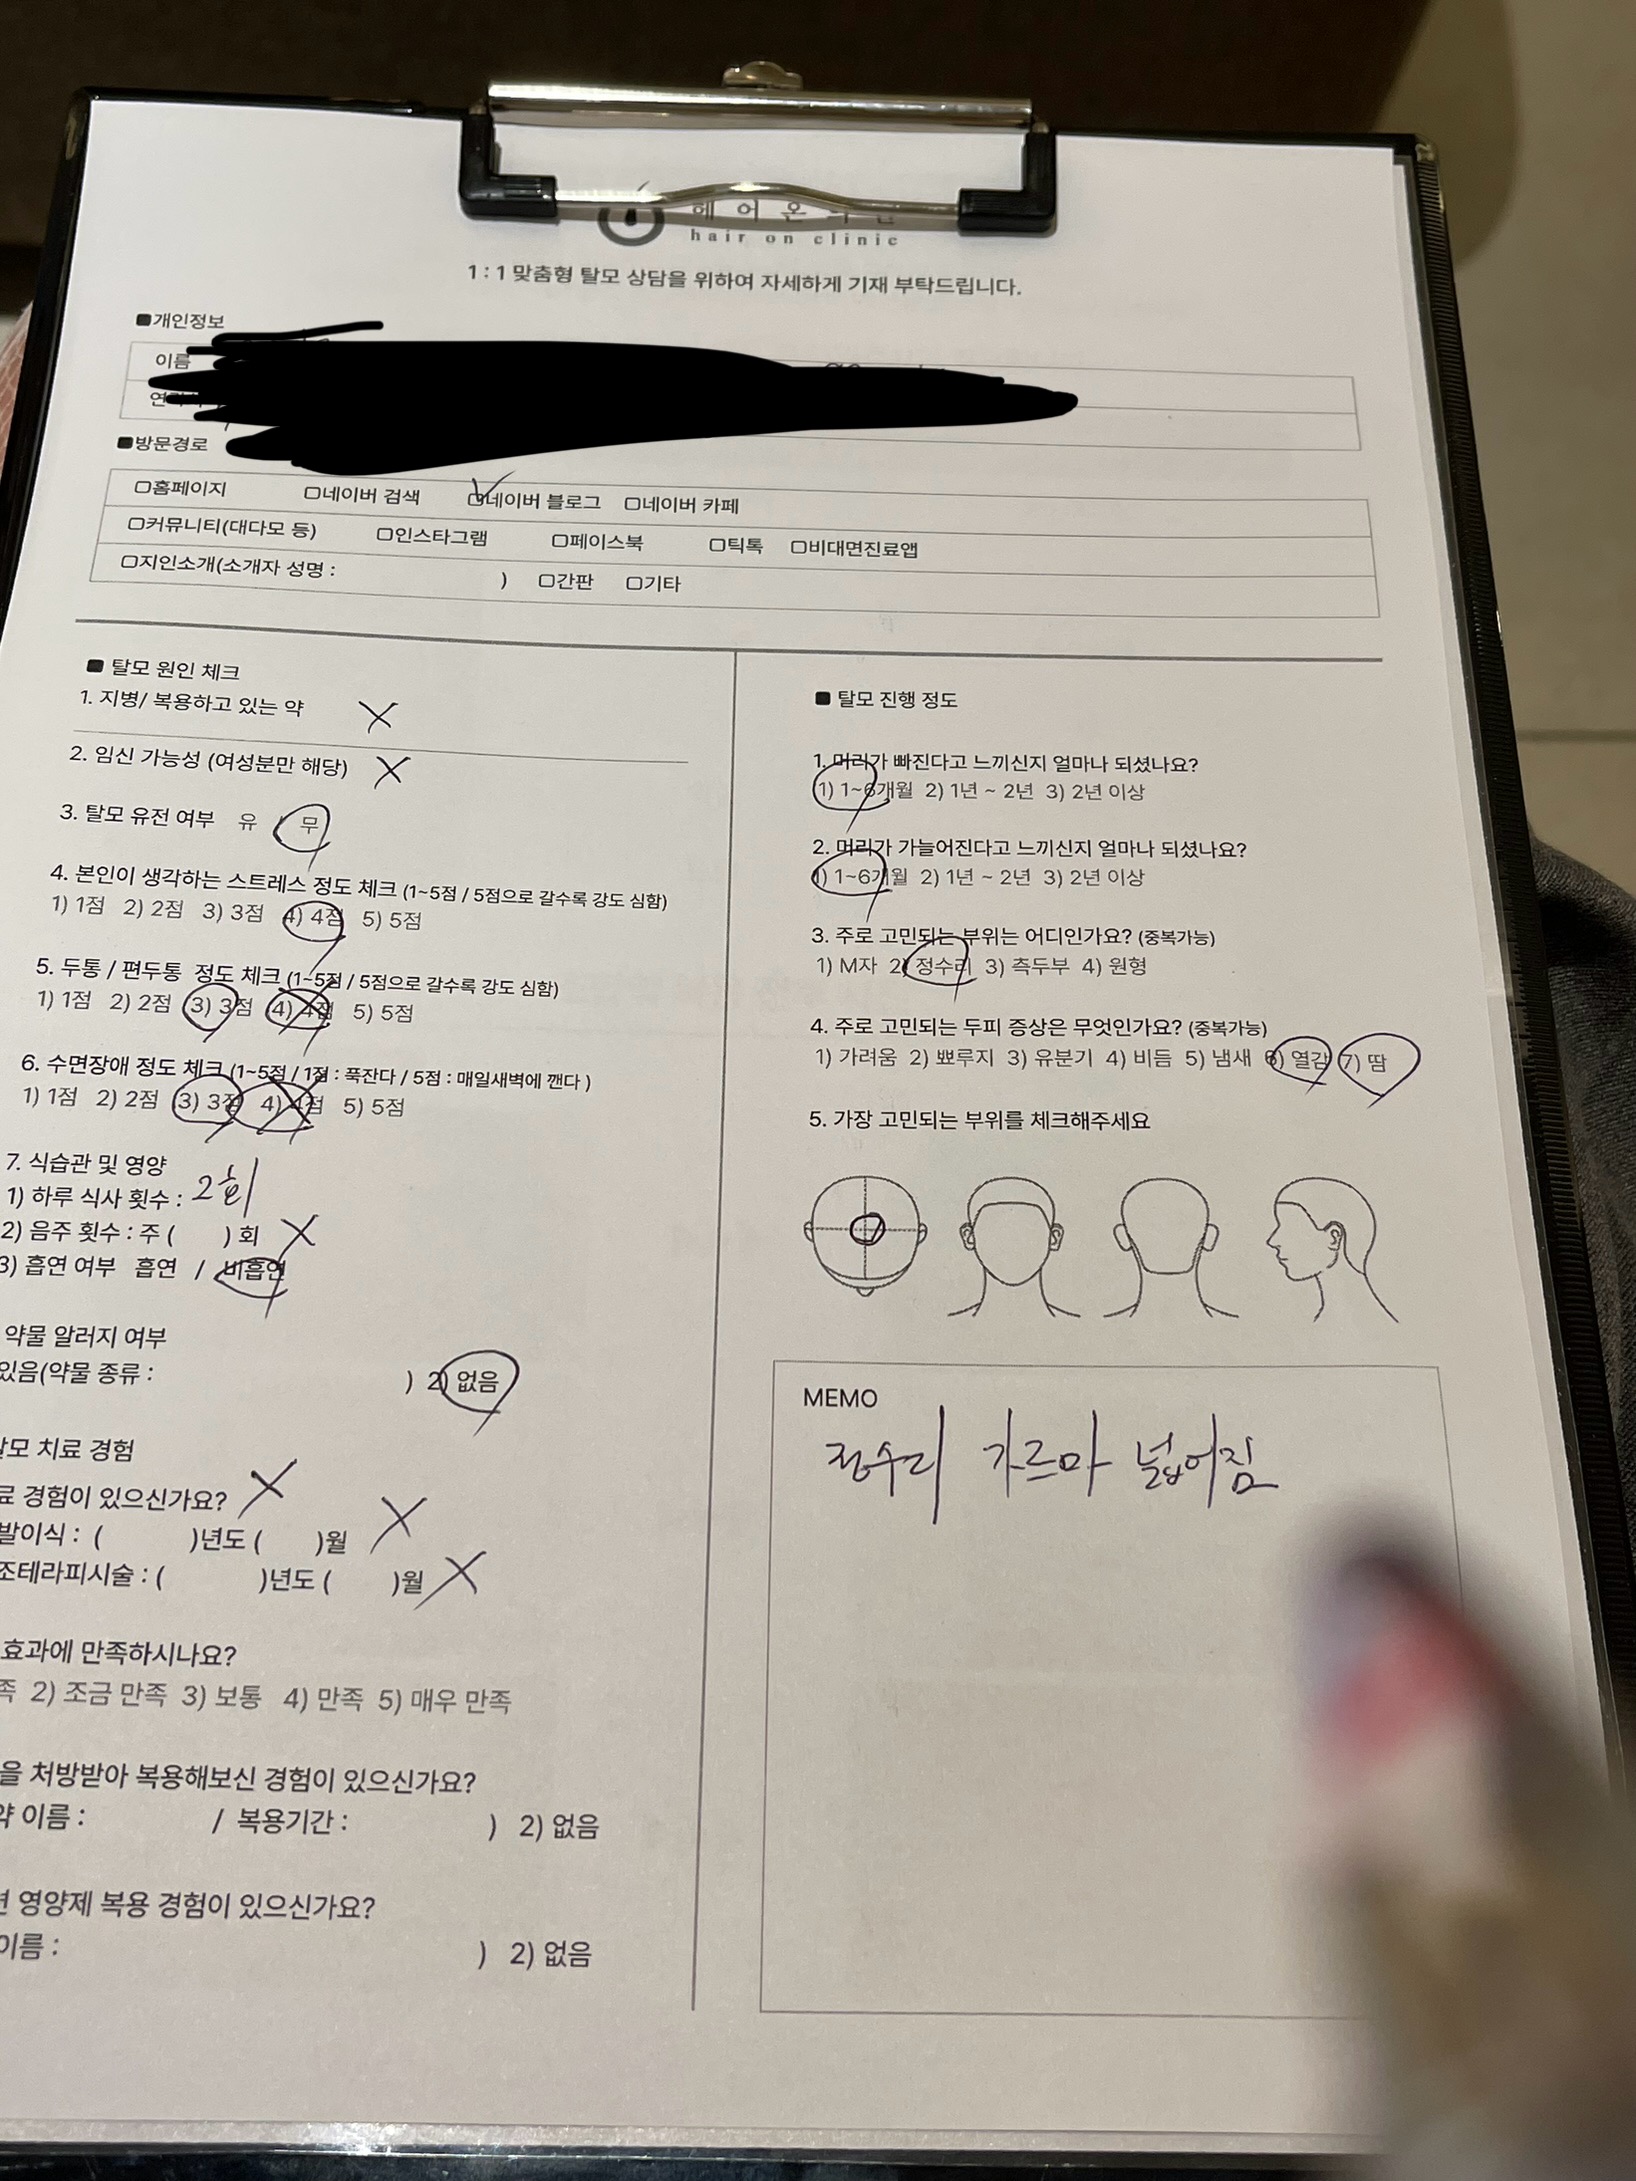 헤어온
hair on clinic
1 : 1 맞춤형 탈모 상담을 위하여 자세하게 기재 부탁드립니다.
■개인정보
이름
■방문경로
□홈페이지 □네이버 검색 ☑네이버 블로그 □네이버 카페
□커뮤니티(대다모 등) □인스타그램 □페이스북 □틱톡 □비대면진료앱
□지인소개(소개자 성명 : ) □간판 □기타
■ 탈모 원인 체크
1. 지병/ 복용하고 있는 약 X
2. 임신 가능성 (여성분만 해당) X
3. 탈모 유전 여부 유 무
4. 본인이 생각하는 스트레스 정도 체크 (1~5점 / 5점으로 갈수록 강도 심함)
1) 1점 2) 2점 3) 3점 4) 4점 5) 5점
5. 두통 / 편두통 정도 체크 (1~5점 / 5점으로 갈수록 강도 심함)
1) 1점 2) 2점 3) 3점 4) 4점 5) 5점
6. 수면장애 정도 체크 (1~5점 / 1점 : 푹잔다 / 5점 : 매일새벽에 깬다 )
1) 1점 2) 2점 3) 3점 4) 4점 5) 5점
7. 식습관 및 영양
1) 하루 식사 횟수 : 2회
2) 음주 횟수 : 주 ( ) 회 X
3) 흡연 여부 흡연 / 비흡연
약물 알러지 여부
있음(약물 종류 : ) 2) 없음
모 치료 경험
료 경험이 있으신가요? X
발이식 : ( )년도 ( )월 X
조테라피시술 : ( )년도 ( )월 X
효과에 만족하시나요?
족 2) 조금 만족 3) 보통 4) 만족 5) 매우 만족
을 처방받아 복용해보신 경험이 있으신가요?
약 이름 : / 복용기간 : ) 2) 없음
영양제 복용 경험이 있으신가요?
이름 : ) 2) 없음
■ 탈모 진행 정도
1. 머리가 빠진다고 느끼신지 얼마나 되셨나요?
1) 1~6개월 2) 1년 ~ 2년 3) 2년 이상
2. 머리가 가늘어진다고 느끼신지 얼마나 되셨나요?
1) 1~6개월 2) 1년 ~ 2년 3) 2년 이상
3. 주로 고민되는 부위는 어디인가요? (중복가능)
1) M자 2) 정수리 3) 측두부 4) 원형
4. 주로 고민되는 두피 증상은 무엇인가요? (중복가능)
1) 가려움 2) 뾰루지 3) 유분기 4) 비듬 5) 냄새 6) 열감 7) 땀
5. 가장 고민되는 부위를 체크해주세요
MEMO
정수리 가르마 넓어짐